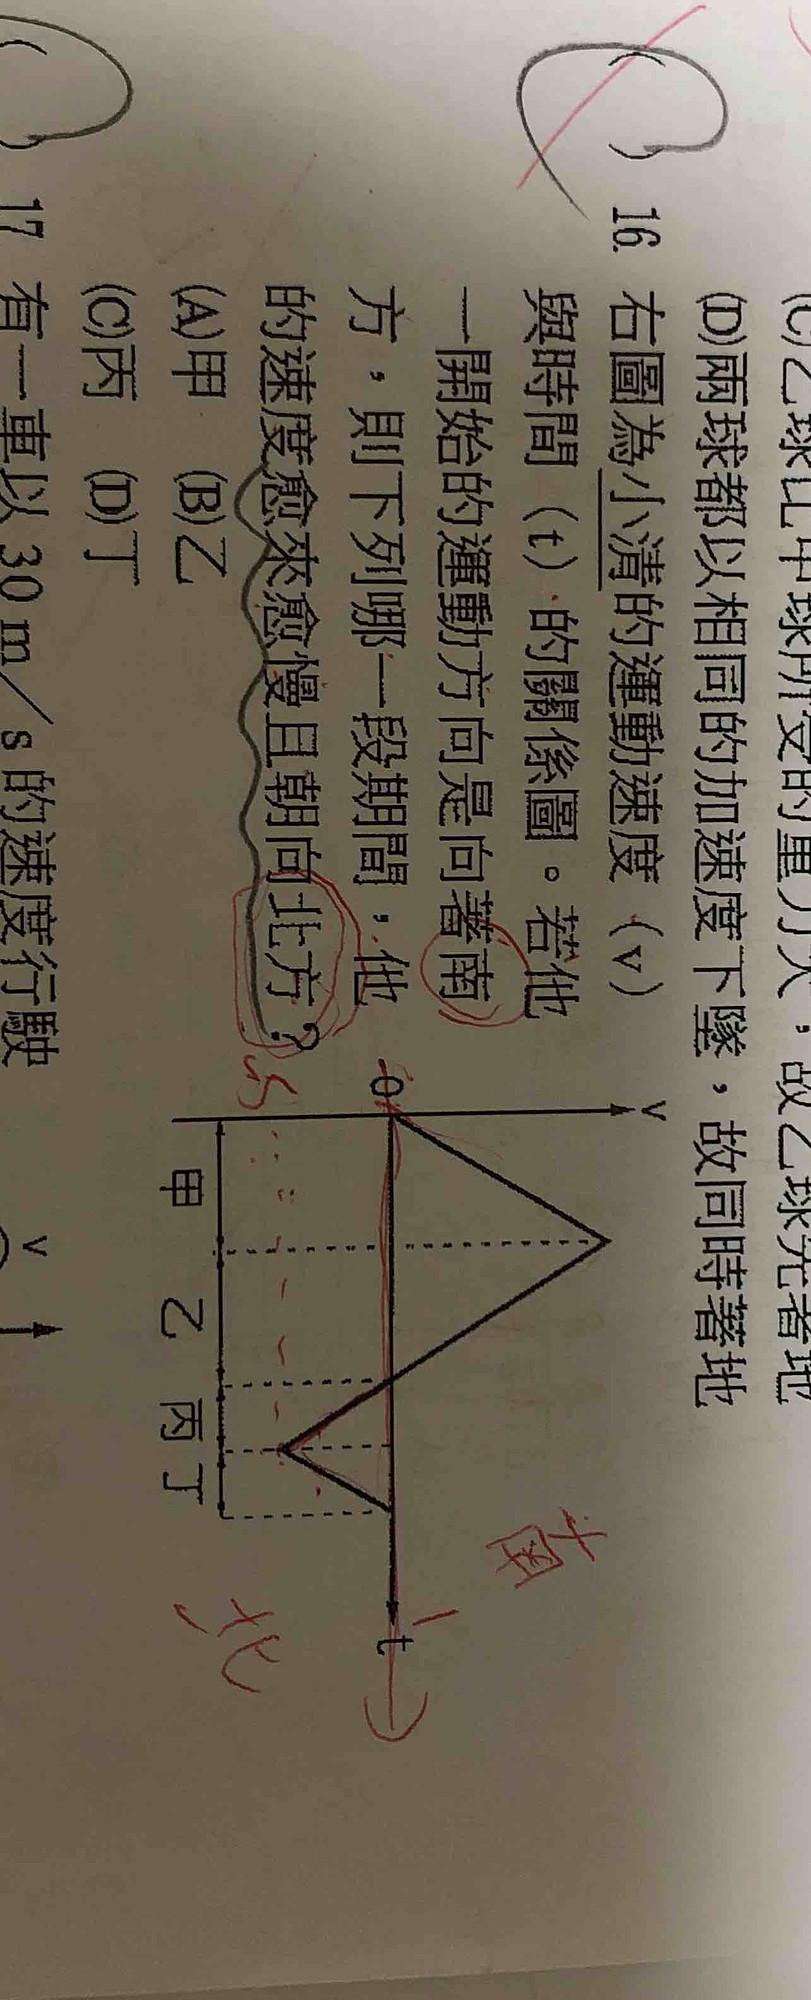 (D)兩球都以相同的加速度下墜，故同時著地
( ) 16. 右圖為小清的運動速度（v）
與時間（t）的關係圖。若他
一開始的運動方向是向著南
方，則下列哪一段期間，他
的速度愈來愈慢且朝向北方？
(A)甲 (B)乙
(C)丙 (D)丁
v
0
t
甲 乙 丙 丁
南
北
( ) 17. 有一車以 30 m／s 的速度行駛
v